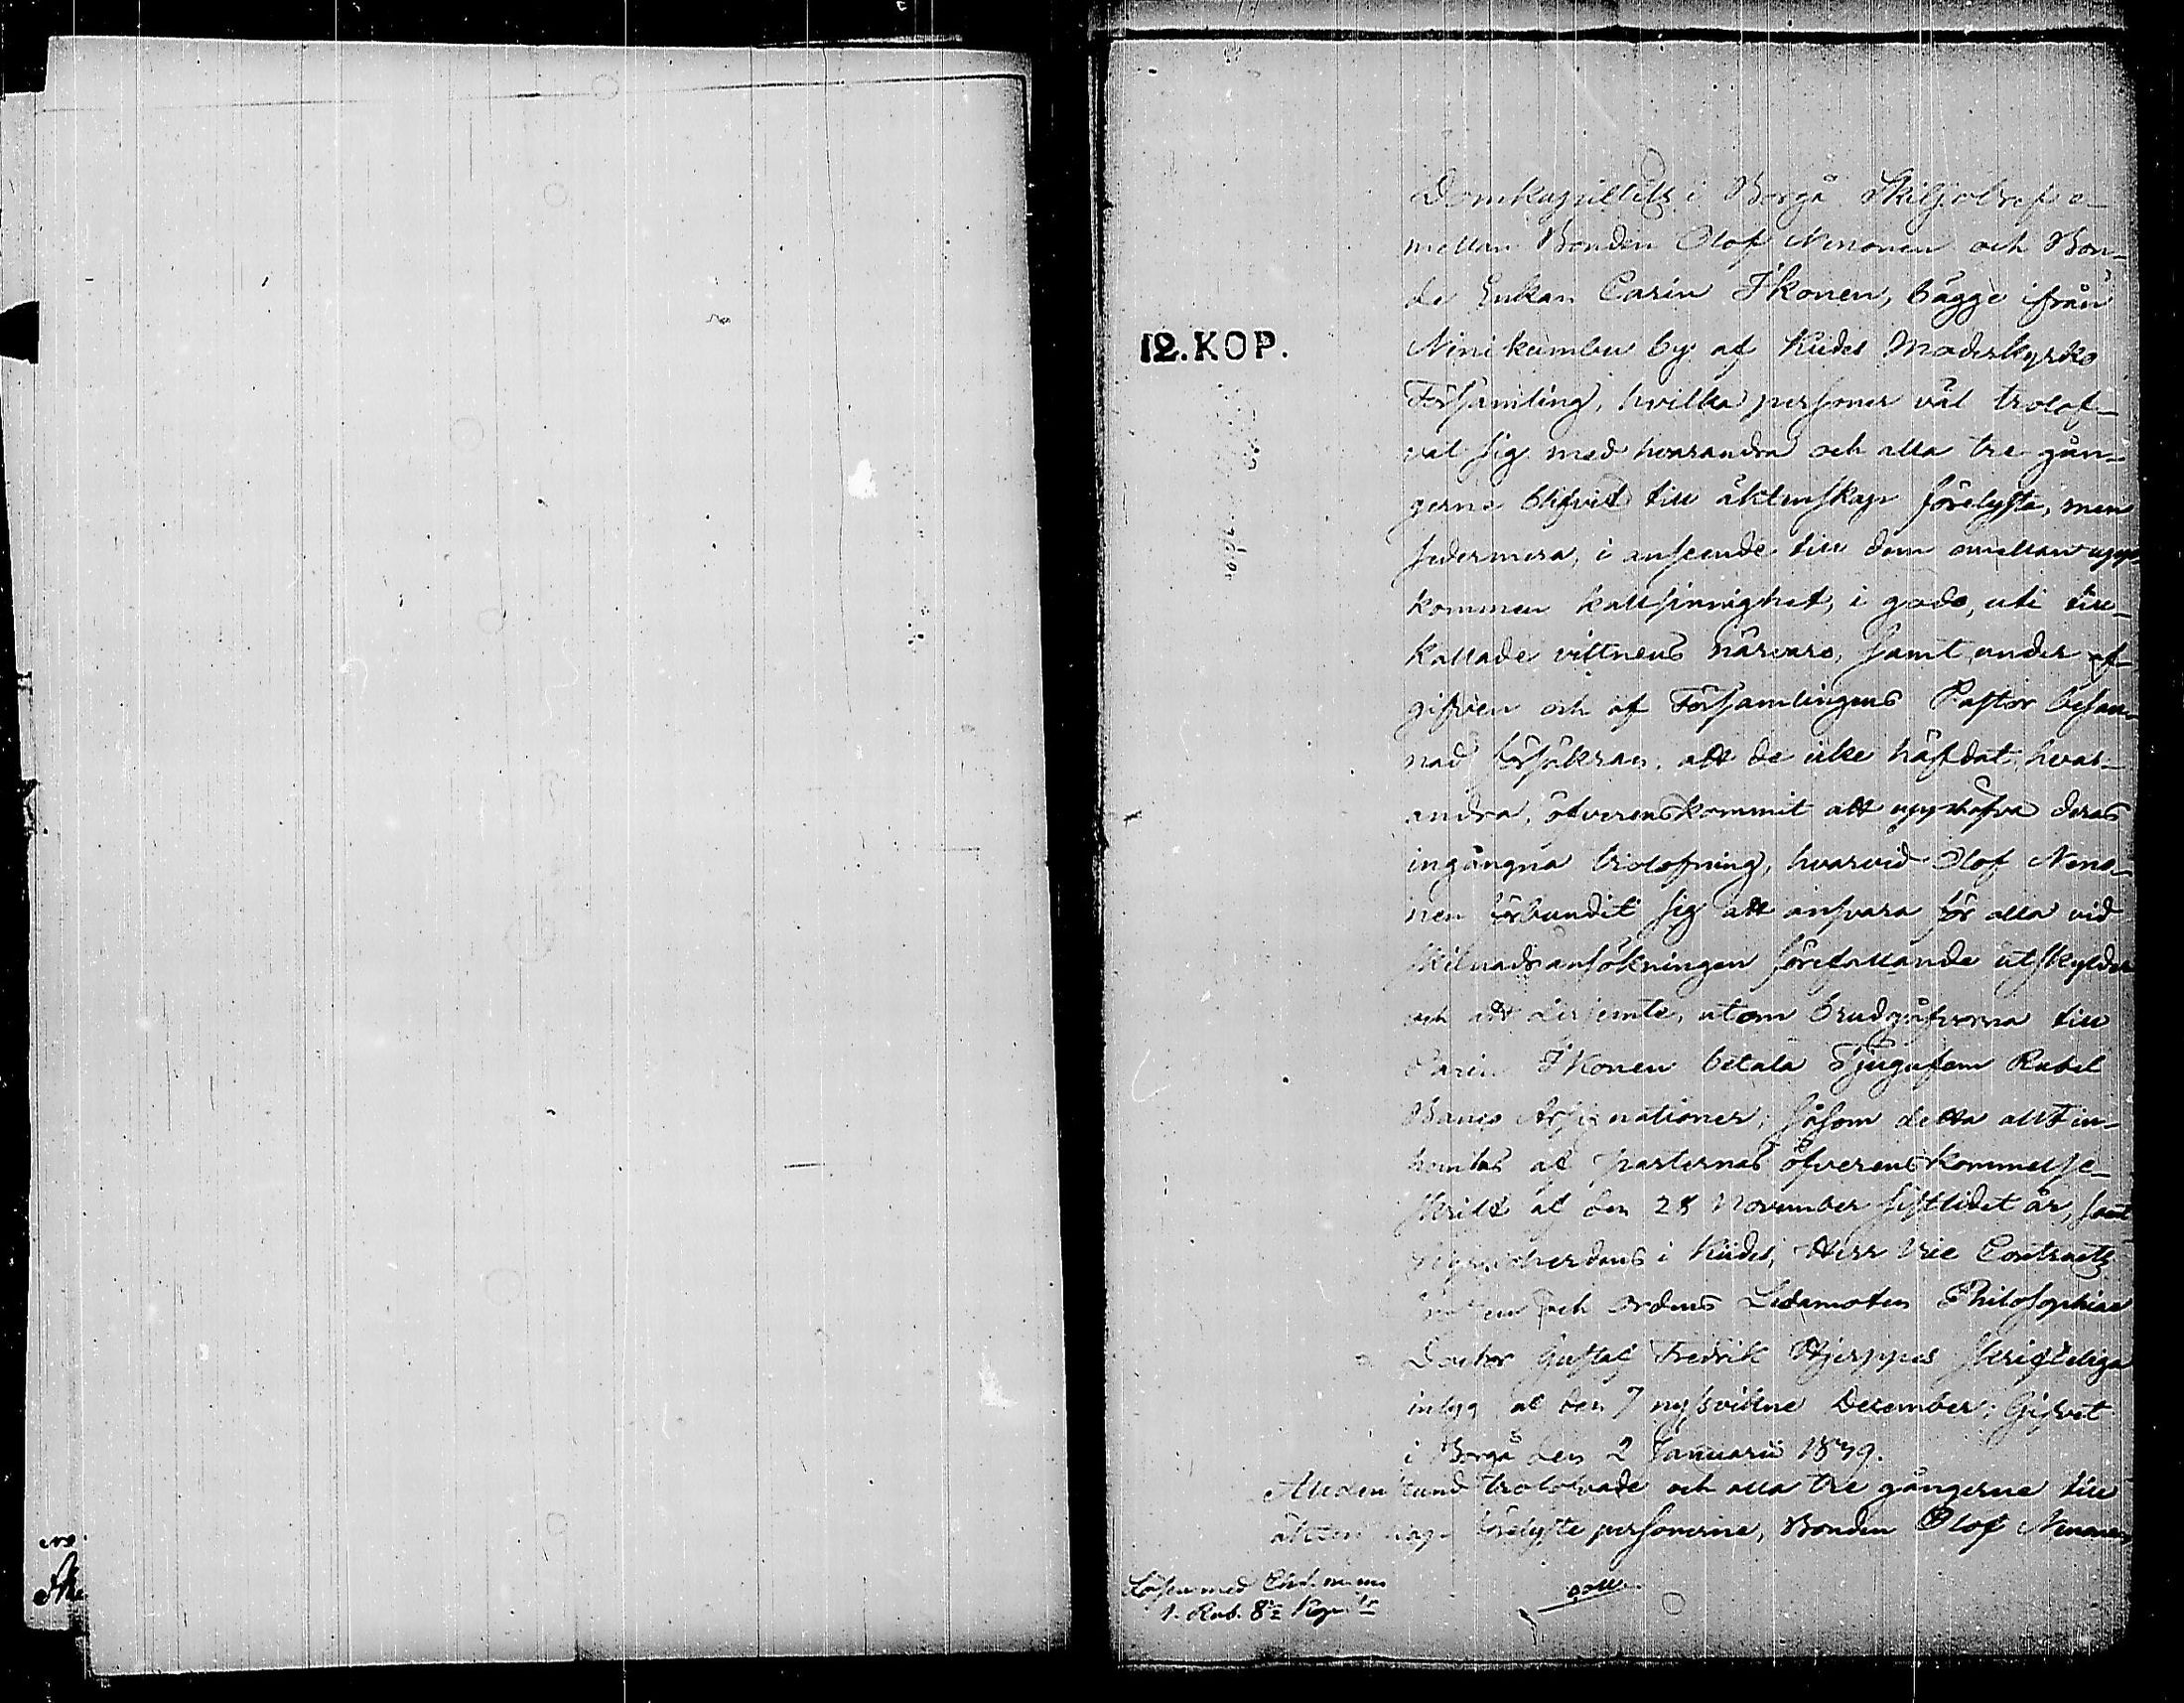 Domkapitlets i Borgå Skiljobref e-
mellan Bonden Olof Nenonen och Bon-
de Enkan Carin Ikonen, bägge ifrån
Ninikumbu by af Kides Moderkyrko
Församling, hvilka personer väl trolof-
vat sig med hvarandra och alla tre gån-
gerne blifvit till äktenskap förelyste, men
sedermera, i anseende till dem emellan upp-
kommen kallsinnighet, i godo, uti till-
kallade vittnens närvaro, samt under af-
gifven och af Församlingens Pastor besan-
nad försäkran, att de icke häfdat hvar-
andra, öfverenskommit att upphäfva deras
ingångna trolofning, hvarvid Olof Neno-
nen förbundit sig att ansvara för alla vid
skilnads ansökningen förefallande utskylder
och att dessemte, utom brudgåfvorna till
Carin Ikonen betala Tjugufem Rubel
Banco Assignationer; såsom detta allt in-
hemtas af parternas öfverenskommelse-
skrift af den 28 November sistlidet år, samt
Kyrkoherdens i Kides, Herr Vice Contracts
Prosten och Ordens Ledamoten Philosophiae
Doctor Gustaf Fredrik Hjerppes skrifteliga
intyg af den 7 nyssvikne December; Gifvet
i Borgå den 2 Januarii 1839.
Alldenstund trolofvade och alla tre gångerne till
äktenskap förelyste personerne, Bonden Olof Nenonen
12.KOP.
Lösen med
1. Rub. 8½ Kop. Sr